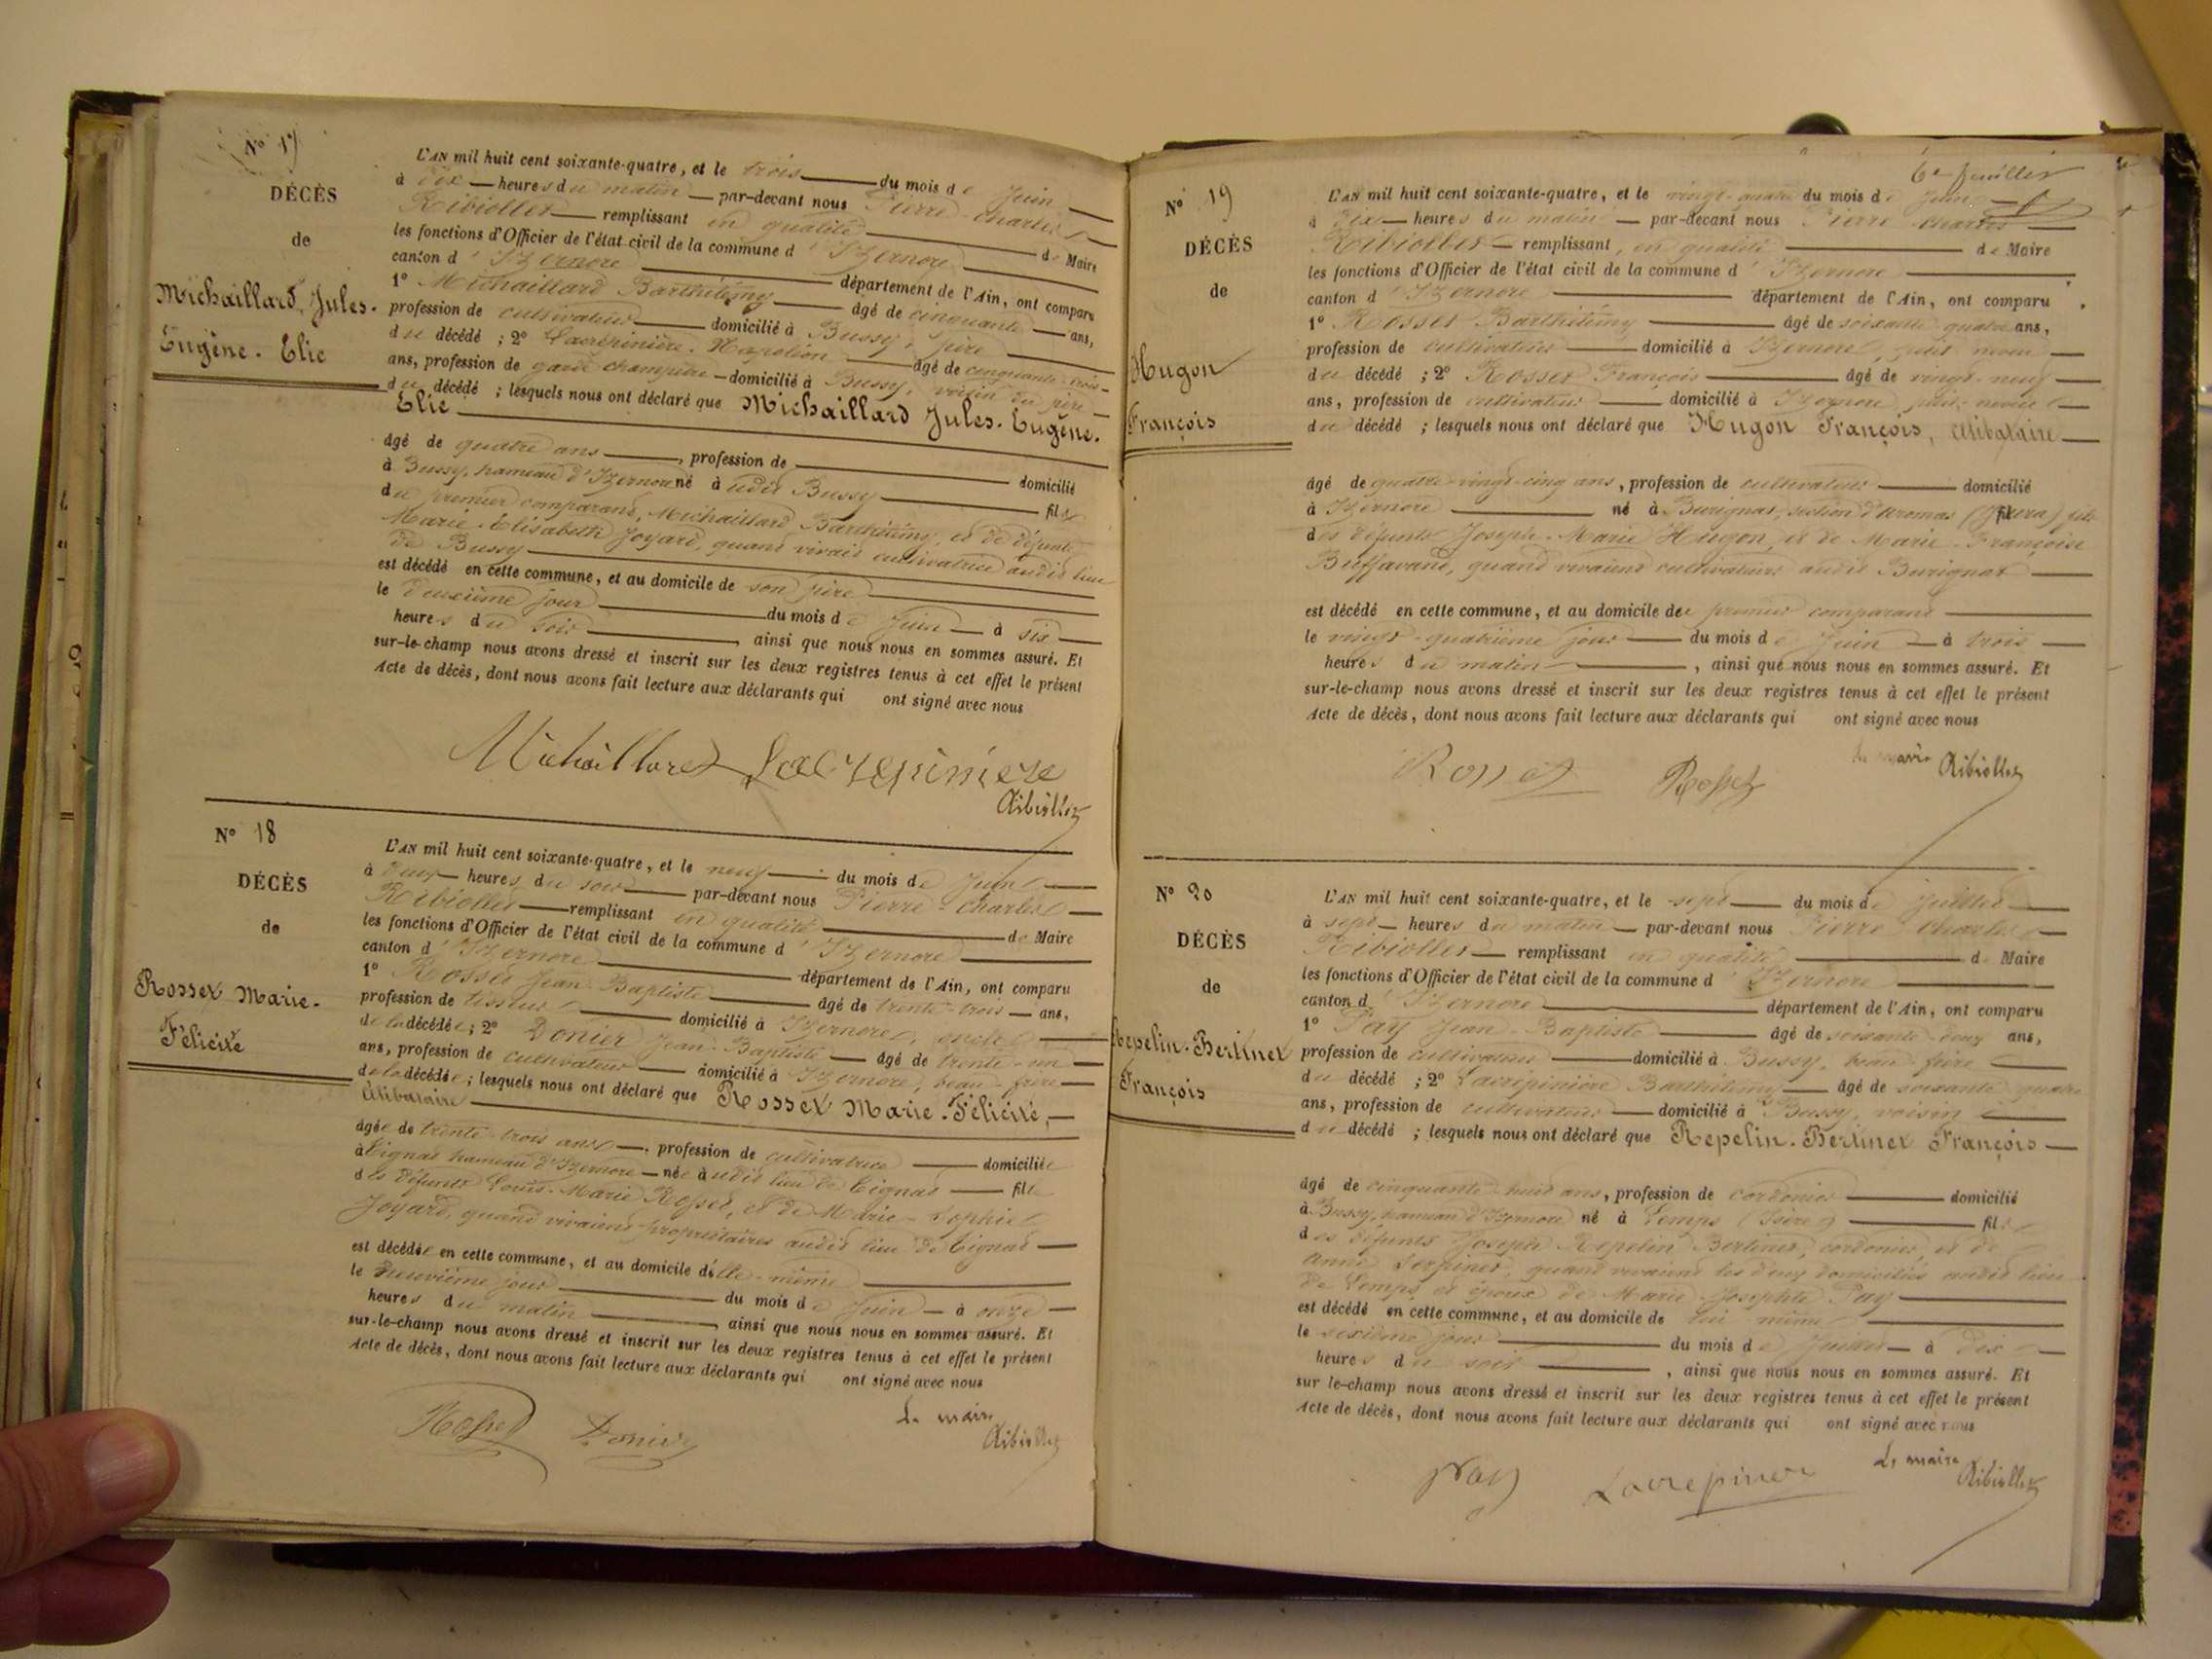 No 17
DÉCÈS
de
Michaillard, Jules.
Eugène. Elie
L'AN mil huit cent soixante-quatre, et le trois du mois de Juin
à dix heures du matin par-devant nous Pierre-Charles
Ribiollet remplissant en qualité de Maire
les fonctions d'Officier de l'état civil de la commune d'Izernore
canton d'Izernore département de l'Ain, ont comparu
1° Michaillard Barthélemy âgé de cinquante ans,
profession de cultivateur domicilié à Bussy, père
du décédé ; 2° Lacrépinière Napoléon âgé de cinquante-trois
ans, profession de garde champêtre domicilié à Bussy, voisin du père
du décédé ; lesquels nous ont déclaré que Michaillard Jules. Eugène.
Elie
âgé de quatre ans, profession de domicilié
à Bussy, hameau d'Izernore né à udit Bussy fils
du premier comparant, Michaillard Barthélemy, et de défunte
Marie-Elisabeth Joyard, quand vivait cultivatrice audit lieu
de Bussy
est décédé en cette commune, et au domicile de son père
le deuxième jour du mois de Juin à six
heures du soir, ainsi que nous nous en sommes assuré. Et
sur-le-champ nous avons dressé et inscrit sur les deux registres tenus à cet effet le présent
Acte de décès, dont nous avons fait lecture aux déclarants qui ont signé avec nous
Michaillard Lacrepiniere
Ribiollet
No 18
DÉCÈS
de
Rosset Marie.
Félicité
L'AN mil huit cent soixante-quatre, et le neuf du mois de Juin
à deux heures du soir par-devant nous Pierre-Charles
Ribiollet remplissant en qualité de Maire
les fonctions d'Officier de l'état civil de la commune d'Izernore
canton d'Izernore département de l'Ain, ont comparu
1° Rosset Jean-Baptiste âgé de trente-trois ans,
profession de tisseur domicilié à Izernore, oncle
de la décédée ; 2° Donier Jean-Baptiste âgé de trente-un
ans, profession de cultivateur domicilié à Izernore, beau-frère
de la décédée ; lesquels nous ont déclaré que Rosset Marie. Félicité,
célibataire
âgée de trente-trois ans, profession de cultivatrice domiciliée
à Tignat hameau d'Izernore née audit lieu de Tignat fille
des défunts Louis-Marie Rosset, et de Marie-Sophie
Joyard, quand vivaient propriétaires audit lieu de Tignat
est décédée en cette commune, et au domicile d'elle-même
le neuvième jour du mois de Juin à onze
heures du matin, ainsi que nous nous en sommes assuré. Et
sur-le-champ nous avons dressé et inscrit sur les deux registres tenus à cet effet le présent
Acte de décès, dont nous avons fait lecture aux déclarants qui ont signé avec nous
Rosset Donier Le maire
Ribiollet
6e feuillet
No 19
DÉCÈS
de
Hugon
François
L'AN mil huit cent soixante-quatre, et le vingt-quatre du mois de Juin
à dix heures du matin par-devant nous Pierre Charles
Ribiollet remplissant, en qualité de Maire
les fonctions d'Officier de l'état civil de la commune d'Izernore
canton d'Izernore département de l'Ain, ont comparu
1° Rosset Barthélemy âgé de soixante-quatre ans,
profession de cultivateur domicilié à Izernore, petit neveu
du décédé ; 2° Rosset François âgé de vingt-neuf
ans, profession de cultivateur domicilié à Izernore, petit-neveu
du décédé ; lesquels nous ont déclaré que Hugon François, célibataire
âgé de quatre-vingt-cinq ans, profession de cultivateur domicilié
à Izernore né à Burignat, section d'Aromas (Jura) fils
des défunts Joseph-Marie Hugon, et de Marie-Françoise
Buffavand, quand vivaient cultivateurs audit Burignat
est décédé en cette commune, et au domicile du premier comparant
le vingt-quatrième jour du mois de Juin à trois
heures du matin, ainsi que nous nous en sommes assuré. Et
sur-le-champ nous avons dressé et inscrit sur les deux registres tenus à cet effet le présent
Acte de décès, dont nous avons fait lecture aux déclarants qui ont signé avec nous
Rosset Rosset le maire Ribiollet
No 20
DÉCÈS
de
Repelin-Bertinet
François
L'AN mil huit cent soixante-quatre, et le sept du mois de Juillet
à sept heures du matin par-devant nous Pierre-Charles
Ribiollet remplissant en qualité de Maire
les fonctions d'Officier de l'état civil de la commune d'Izernore
canton d'Izernore département de l'Ain, ont comparu
1° Pay Jean-Baptiste âgé de soixante-deux ans,
profession de cultivateur domicilié à Bussy, beau-frère
du décédé ; 2° Lacrépinière Barthélemy âgé de soixante quatre
ans, profession de cultivateur domicilié à Bussy, voisin
du décédé ; lesquels nous ont déclaré que Repelin-Bertinet François
âgé de cinquante-huit ans, profession de cordonier domicilié
à Bussy, hameau d'Izernore né à Lemps (Isère) fils
des défunts Joseph Repelin Bertinet, cordonier, et de
Anne quand vivaient les deux domiciliés audit lieu
de Lemps et époux de Marie-Josephte Pay
est décédé en cette commune, et au domicile de lui-même
le sixième jour du mois de Juillet à dix
heures du soir, ainsi que nous nous en sommes assuré. Et
sur le-champ nous avons dressé et inscrit sur les deux registres tenus à cet effet le présent
Acte de décès, dont nous avons fait lecture aux déclarants qui ont signé avec nous
Pay Lacrepinier Le maire Ribiollet